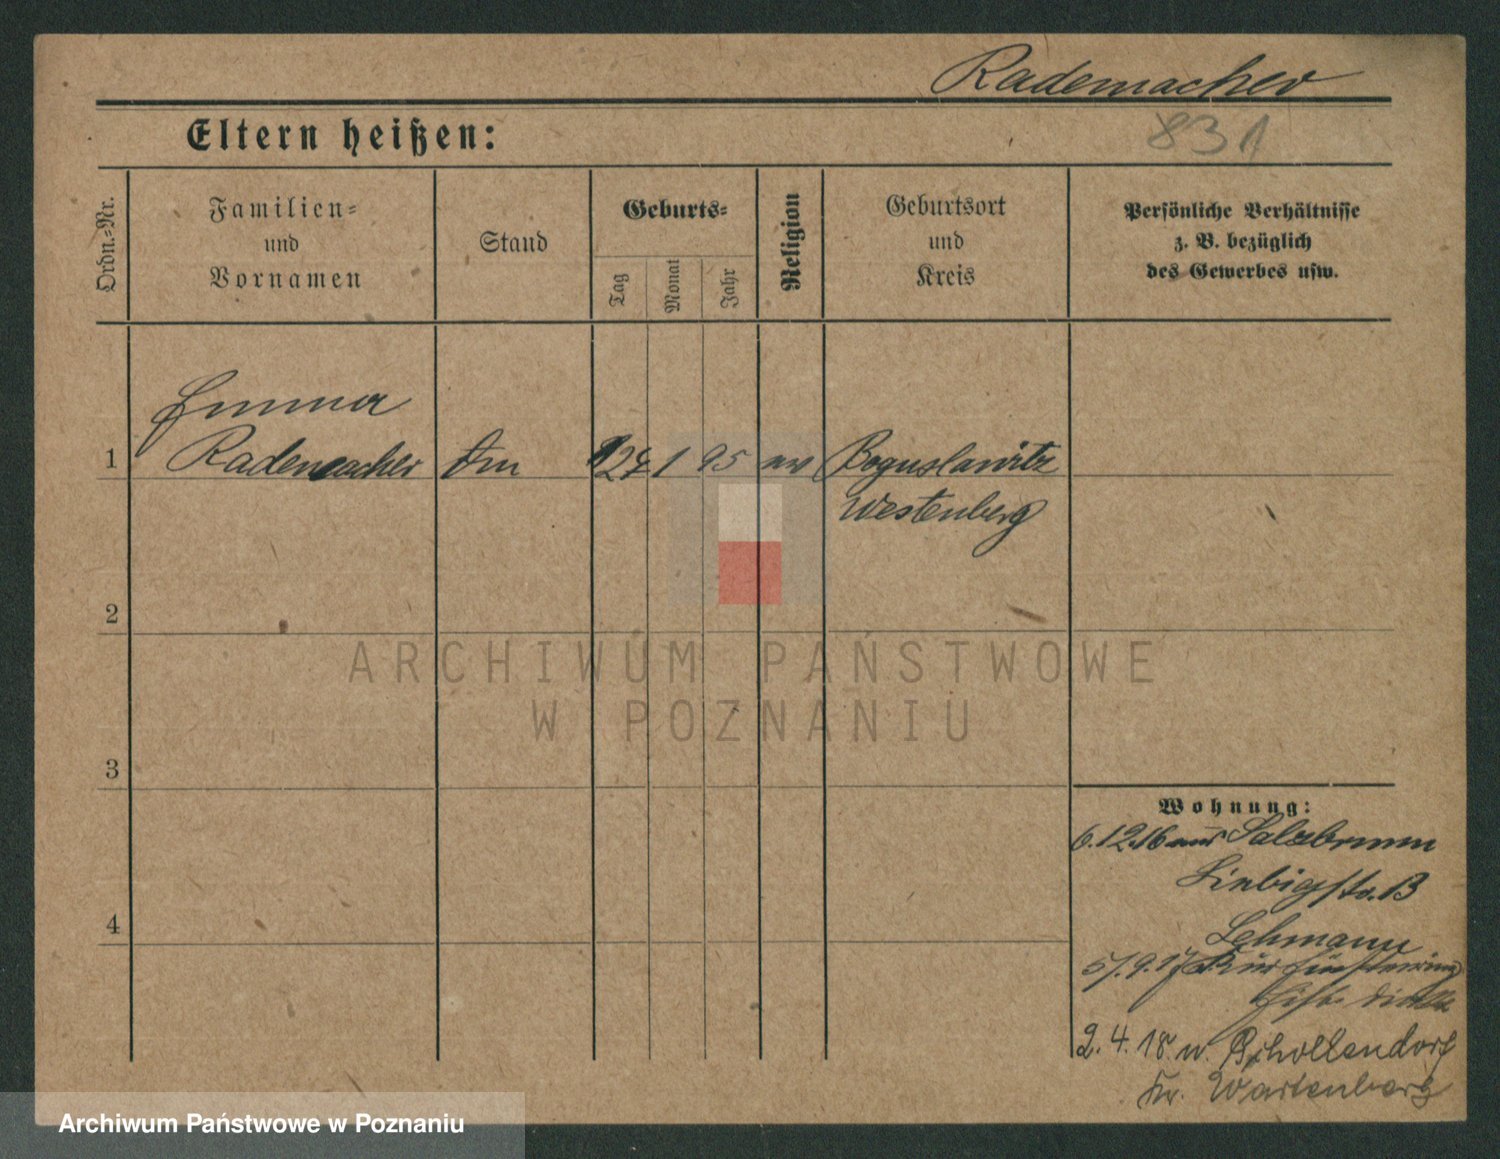 Rademacher
Eltern heißen:
831
Ordn.=Nr.
Familien=
und
Vornamen
Stand
Geburts=
Tag
Monat
Jahr
Religion
Geburtsort
und
Kreis
Persönliche Verhältnisse
z. B. bezüglich
des Gewerbes usw.
Emma
1 Rademacher 24 1 95 Boguslawitz
Westenberg
2
3
4
Wohnung:
6.12.16 aus Salzbrunn
Liebigstr. 13
Lehmann
5/.9.17
2.4.18. n. Schollendorf
Kr. Wartenberg
ARCHIWUM PAŃSTWOWE
W POZNANIU
Archiwum Państwowe w Poznaniu